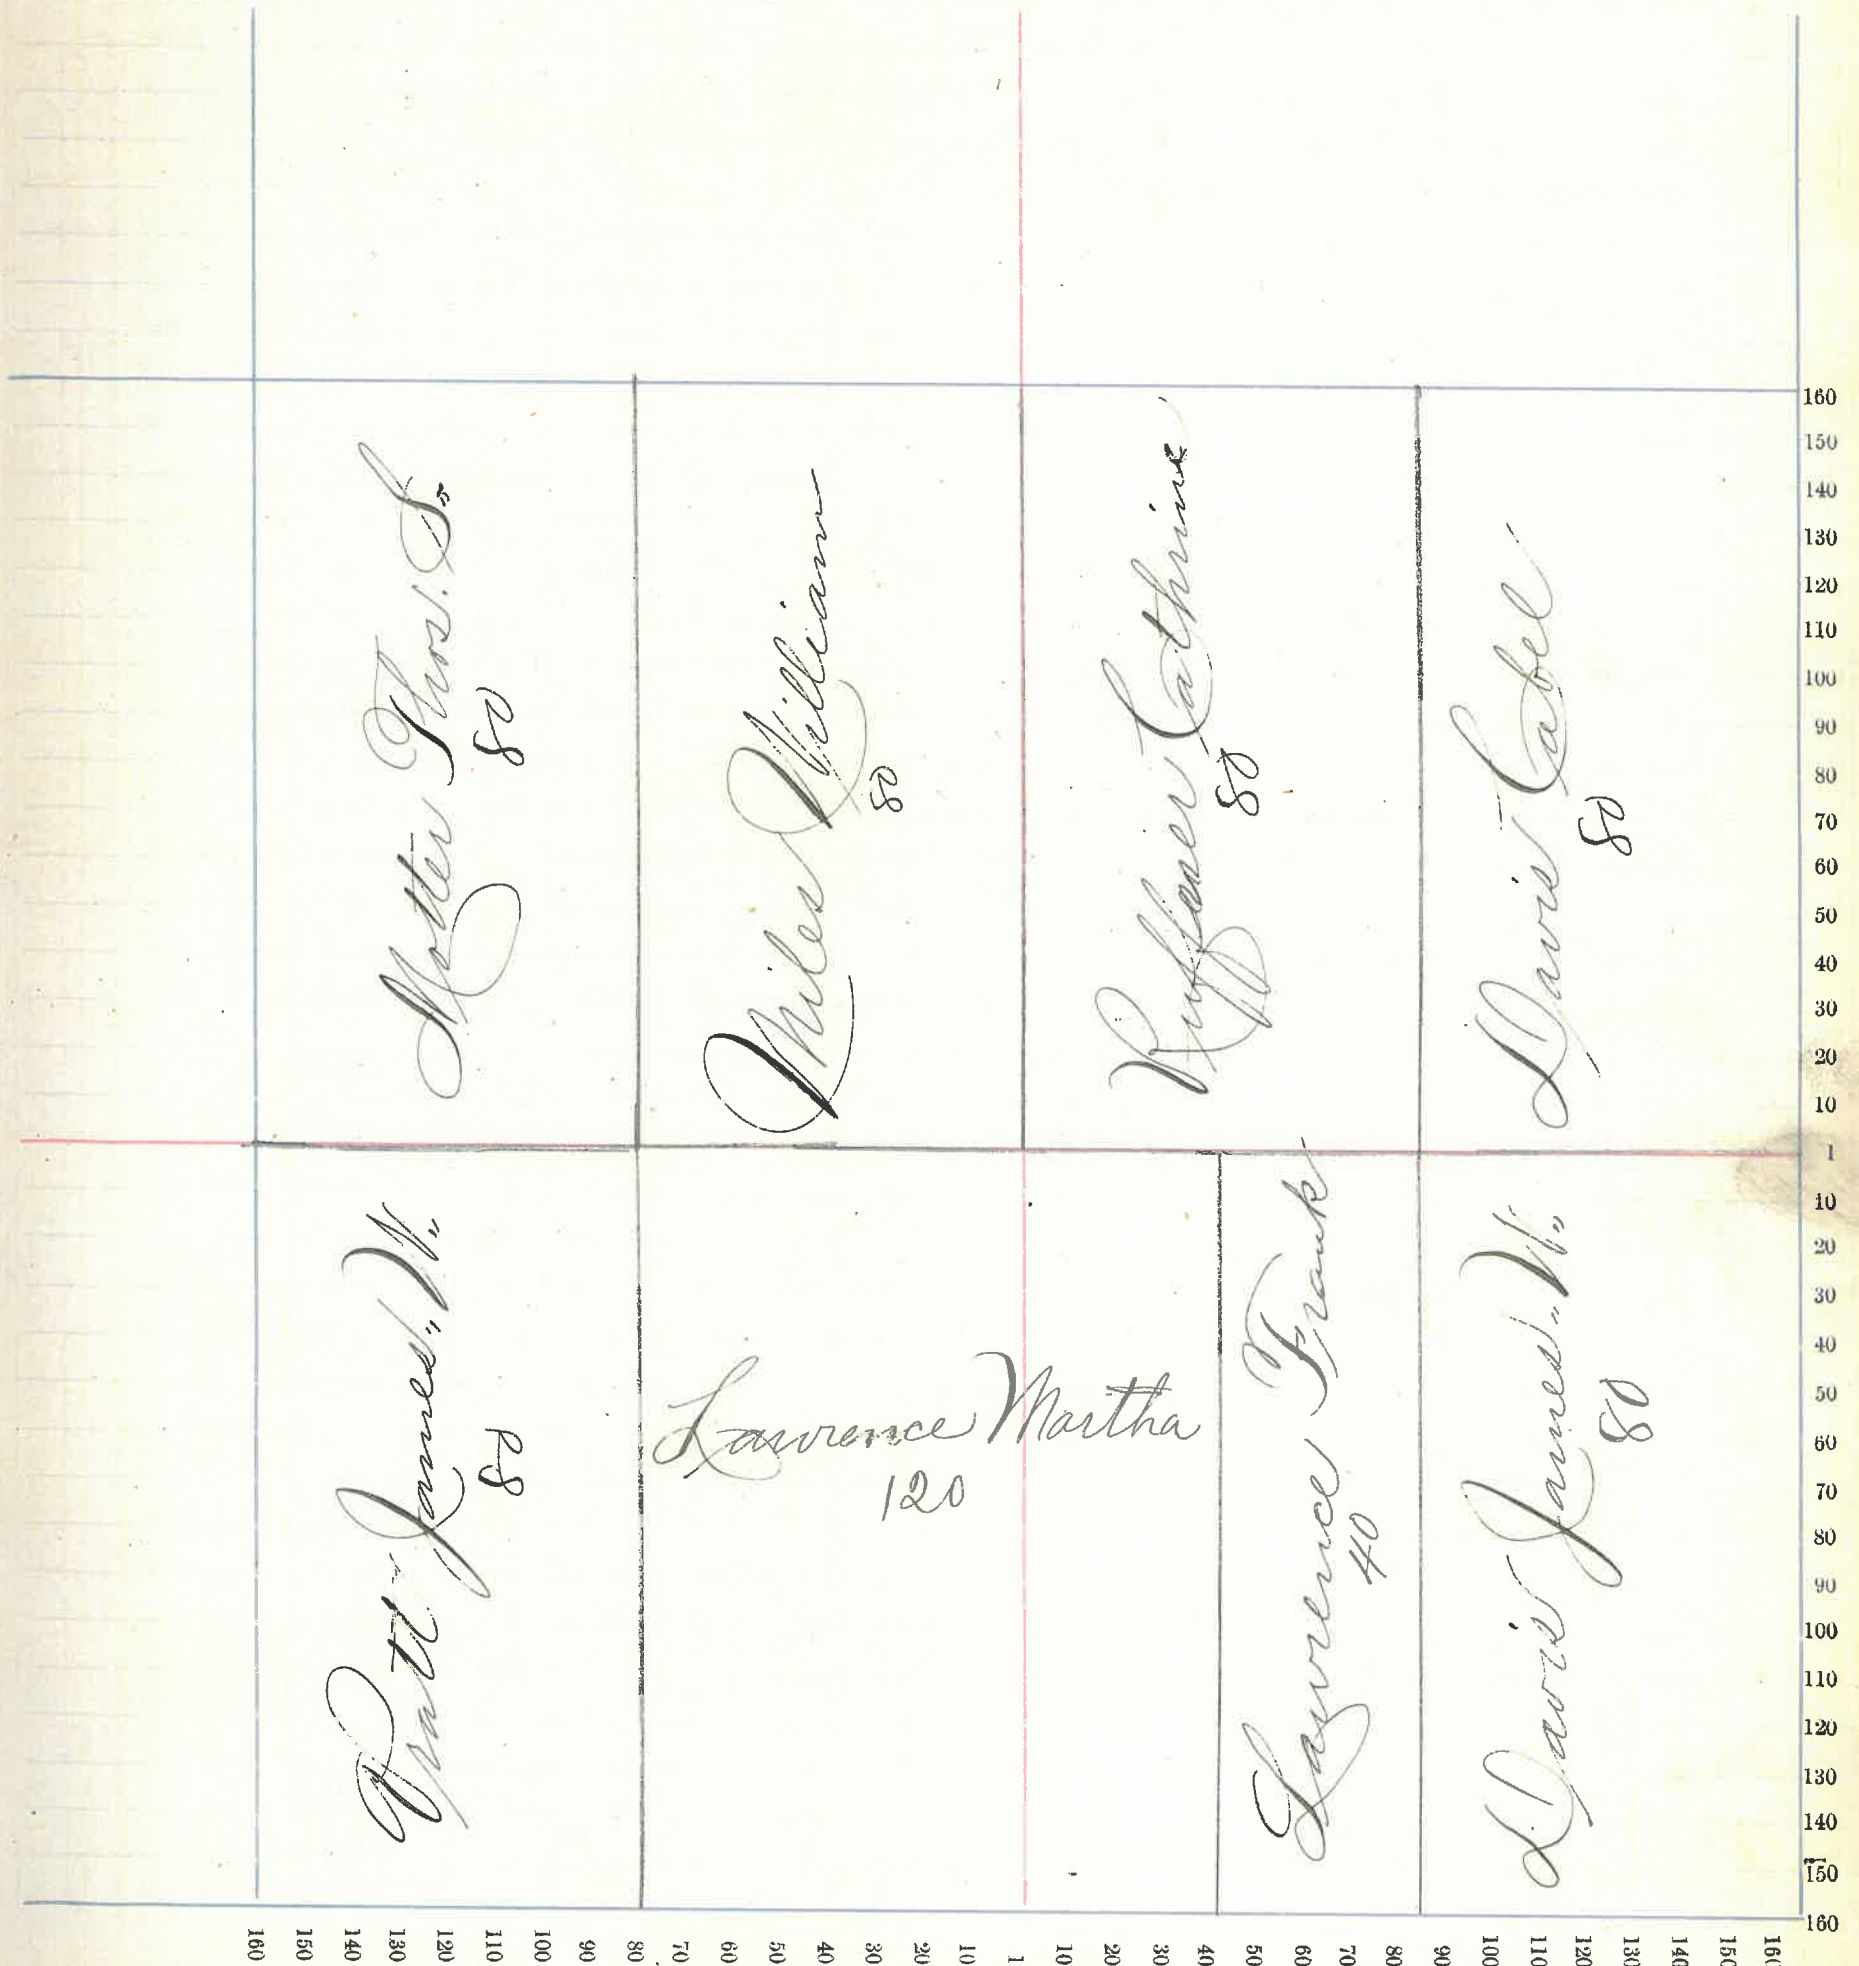 Motter Thos. S.
80
Miles William
80
Ruffener Cathrine
80
Davis Cabel
80
Pratt James. W.
80
Lawrence Martha
120
Lawrence Frank
40
Davis James. W.
80
160
150
140
130
120
110
100
90
80
70
60
50
40
30
20
10
1
10
20
30
40
50
60
70
80
90
100
110
120
130
140
150
160
160 150 140 130 120 110 100 90 80 70 60 50 40 30 20 10 1 10 20 30 40 50 60 70 80 90 100 110 120 130 140 150 160